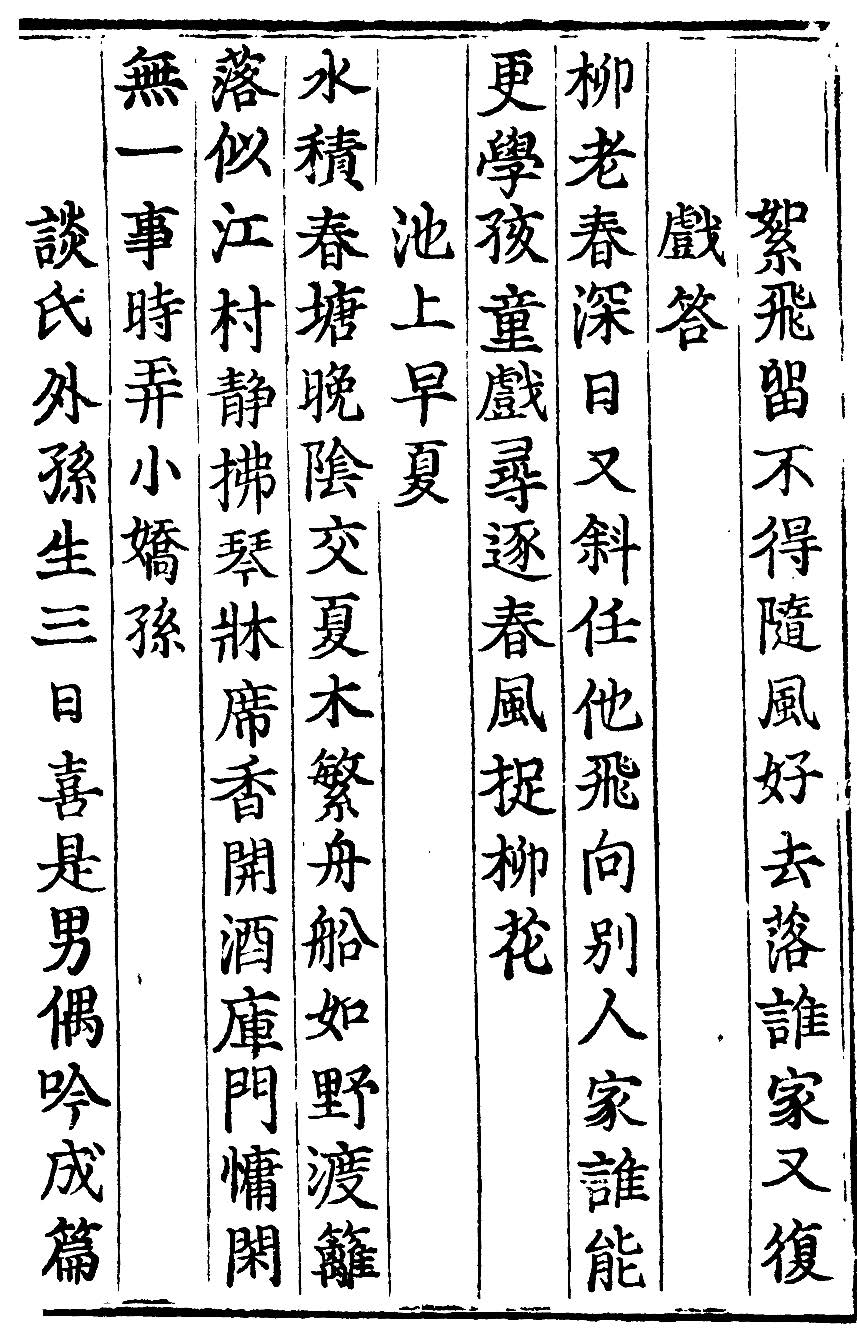 絮飛留不得隨風好去落誰家又復
戲答
柳老春深日又斜任他飛向别人家誰能
更學孩童戲尋逐春風捉柳花
池上早夏
水積春塘晚陰交夏木繁舟船如野渡籬
落似江村静拂琴牀席香開酒庫門慵閑
無一事時弄小嬌孫
談氏外孫生三日喜是男偶吟成篇